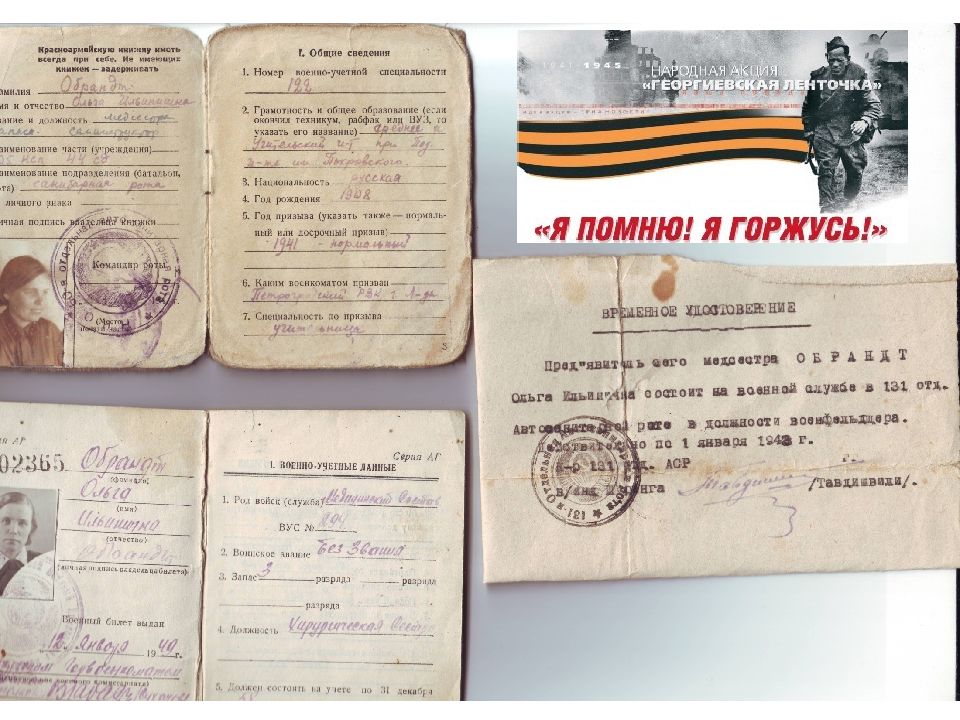 Красноармейскую книжку иметь
всегда при себе. Не имеющих
книжек — задерживать
амилия Обрандт
мя и отчество Ольга Ильинична
вание и должность медсестра
санинструктор
аименование части (учреждения)
44 сд
аименование подразделения (батальон,
ота) санитарная рота
личного знака
ичная подпись владельца книжки
Командир роты
I. Общие сведения
1. Номер военно-учетной специальности
122
2. Грамотность и общее образование (если
окончил техникум, рабфак или ВУЗ, то
указать его название) среднее и
Учительский и-т при Пед.
и-те им. Покровского.
3. Национальность русская
4. Год рождения 1908
5. Год призыва (указать также — нормаль-
ный или досрочный призыв)
1941 - нормальный
6. Каким военкоматом призван
Петроградский РВК г. Л-да
7. Специальность по призыва
учительница
3
1941 1945
НАРОДНАЯ АКЦИЯ
«ГЕОРГИЕВСКАЯ ЛЕНТОЧКА»
«Я ПОМНЮ! Я ГОРЖУСЬ!»
ВРЕМЕННОЕ УДОСТОВЕРЕНИЕ
Пред"явитель сего медсестра ОБРАНДТ
Ольга Ильинична состоит на военной службе в 131 отд.
Автосанитарной роте в должности военфельдшера.
Действительно по 1 января 1943 г.
к-р 131 отд. АСР
в/инж 3 ранга /Тавдишвили/.
ия АГ
02365
Обрандт
(фамилия)
Ольга
(имя)
Ильинична
(отчество)
(личная подпись владельца билета)
Военный билет выдан
12 января 1949 г.
Серия АГ
1. ВОЕННО-УЧЕТНЫЕ ДАННЫЕ
1. Род войск (служба) Медицинский Состав
ВУС №
2. Воинское звание Без звания
3. Запас 3 разряда разряда
разряда
4. Должность Хирургическая Сестра
5. Должен состоять на учете по 31 декабря